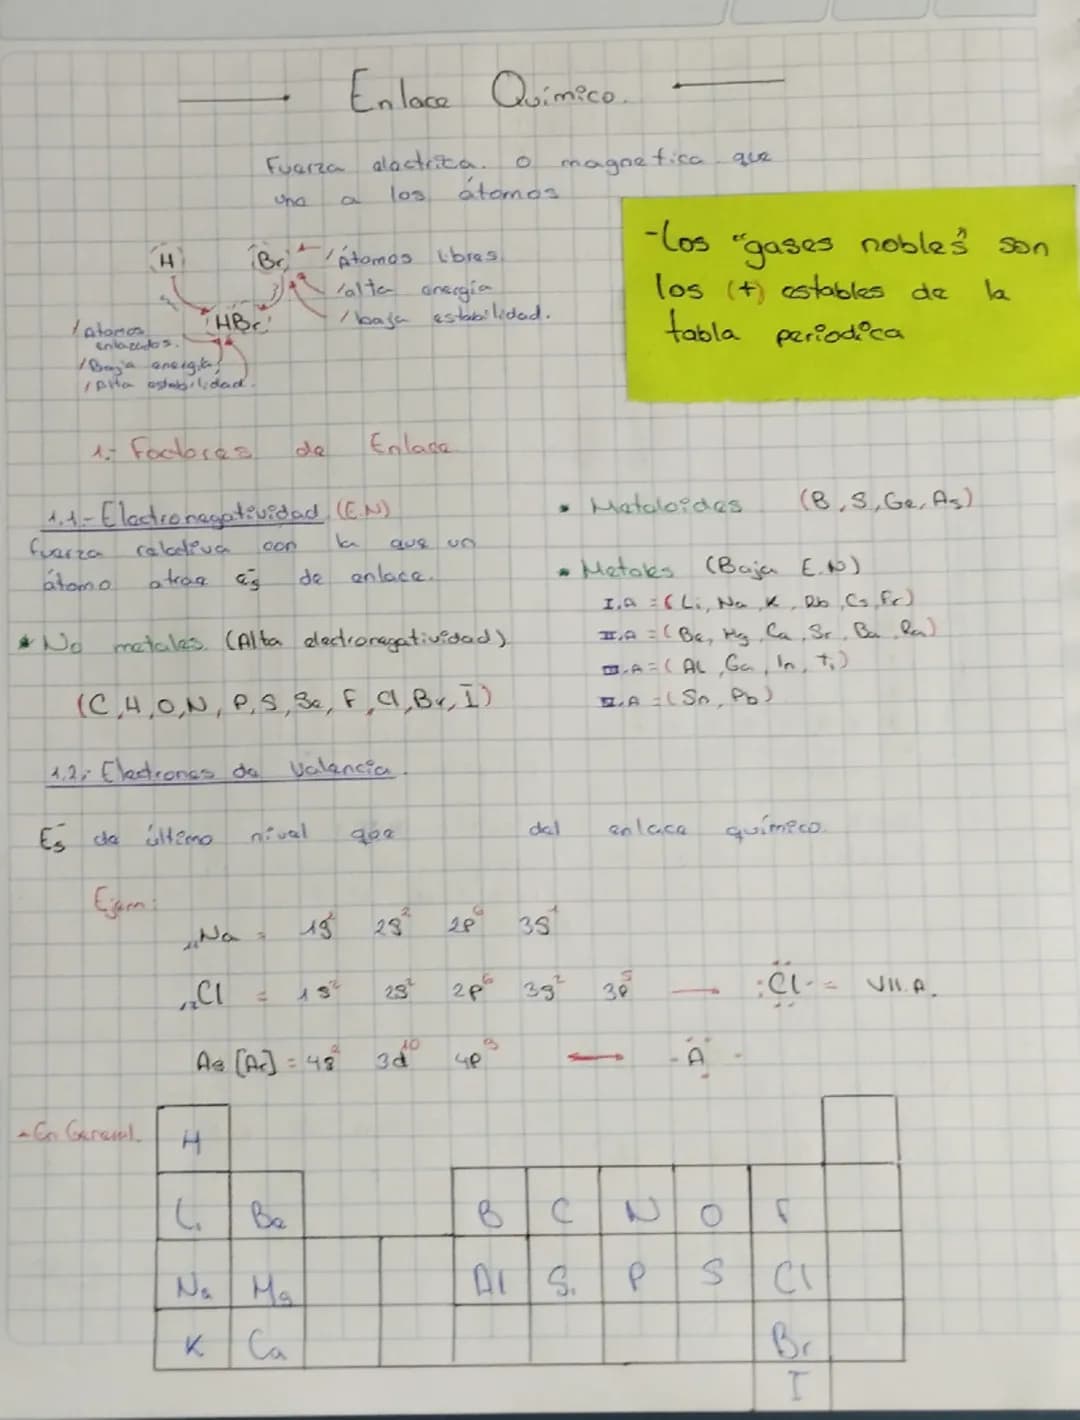 Enlace Químico.
Fuerza electrica o magnetica que
una a los átomos
-Los "gases nobles" son
los (+) estables de la
tabla periodica
H
Br
/Átomos libres
/alta energia
/baja estabilidad.
HBr
/Atomos
enlazados.
/Baja energia
/Alta estabilidad.
1.- Factores de Enlace
1.1.- Electronegatividad (E.N)
fuerza relativa con la que un
átomo atrae es de enlace.
* No metales (Alta electronegatividad)
(C,H,O,N,P,S,Se,F,Cl,Br,I)
• Metaloides (B,S,Ge,As)
• Metales (Baja E.N)
I.A = (Li, Na, K, Rb, Cs, Fr)
II.A = (Be, Mg, Ca, Sr, Ba, Ra)
III.A = (Al, Ga, In, Ti)
IV.A = (Sn, Pb)
1.2.- Electrones de Valencia.
Es de último nivel que del enlace químico.
Ejem:
11Na = 1s² 2s² 2p⁶ 3s¹
17Cl = 1s² 2s² 2p⁶ 3s² 3p⁵ → :Cl· = VII.A.
As [Ar] = 4s² 3d¹⁰ 4p³ - A -
- En General.
H
Li Be B C N O F
Na Mg Al Si P S Cl
K Ca Br
I